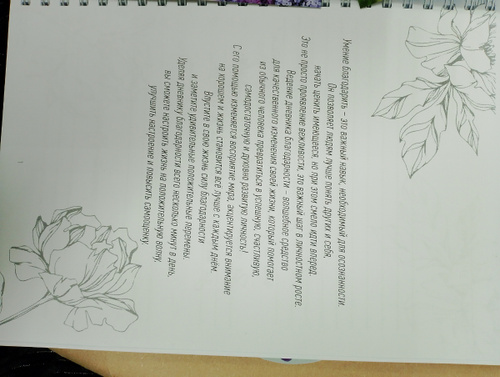 Умение благодарить – это важный навык, необходимый для осознанности.
Он позволяет людям лучше понять других и себя,
начать ценить имеющееся, но при этом смело идти вперед.
Это не просто проявление вежливости, это важный шаг в личностном росте.
Ведение дневника благодарности – волшебное средство
для качественного изменения своей жизни, который помогает
из обычного человека превратиться в успешную, счастливую,
самодостаточную и духовно развитую личность!
С его помощью изменяется восприятие мира, акцентируется внимание
на хорошем и жизнь становится всё лучше с каждым днём.
Впустите в свою жизнь силу благодарности
и заметите удивительные положительные перемены.
Уделяя дневнику благодарности всего несколько минут в день,
вы сможете настроить жизнь на положительную волну,
улучшить настроение и повысить самооценку.